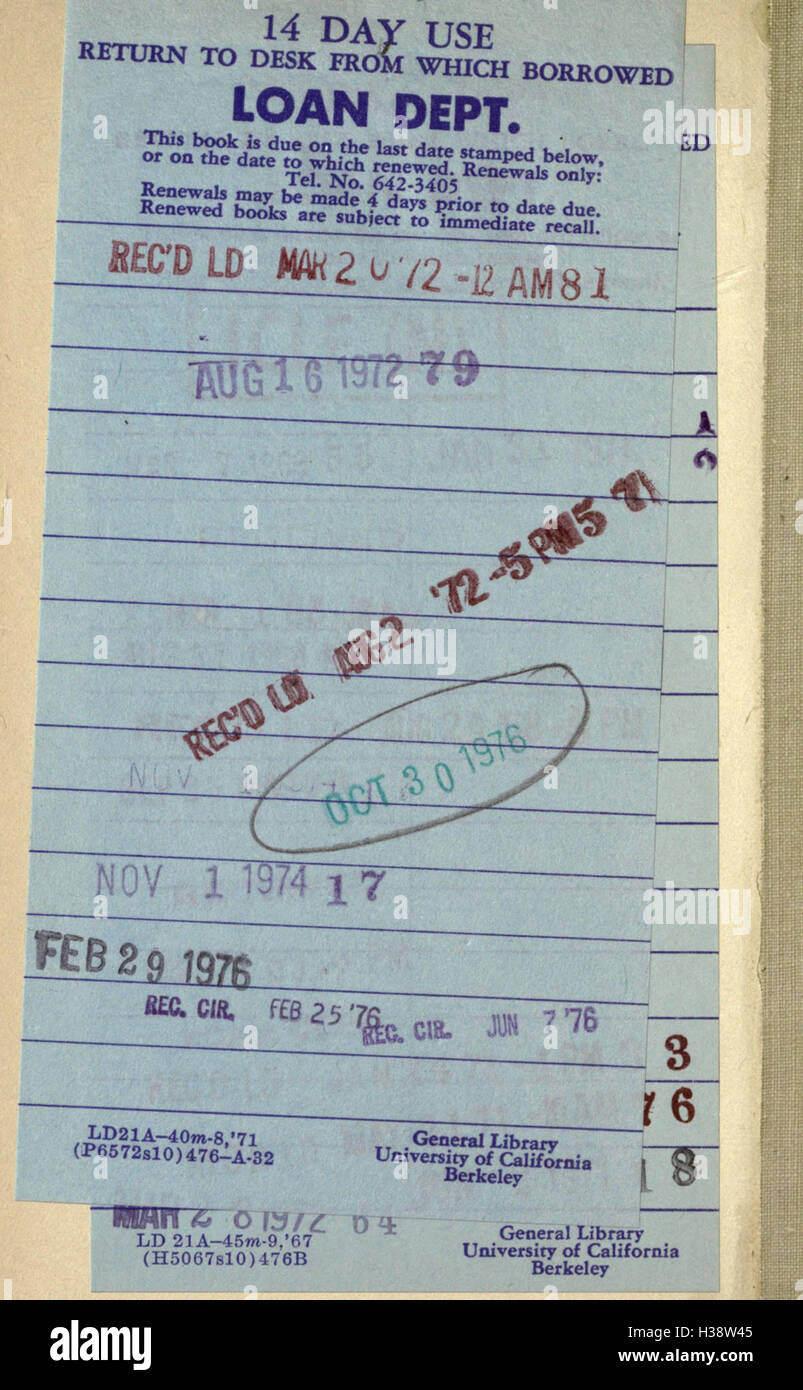 14 DAY USE
RETURN TO DESK FROM WHICH BORROWED
LOAN DEPT.
This book is due on the last date stamped below,
or on the date to which renewed. Renewals only:
Tel. No. 642-3405
Renewals may be made 4 days prior to date due.
Renewed books are subject to immediate recall.
ED
REC'D LD MAR 20 '72 -12 AM 81
AUG 16 1972 79
REC'D LD. AUG 2 '72 -5 PM 5
OCT 30 1976
NOV 1 1974 17
FEB 29 1976
REC. CIR. FEB 25 '76
REC. CIR. JUN 7 '76
3
76
18
LD21A–40m-8,'71
(P6572s10)476–A-32
General Library
University of California
Berkeley
MAR 28 1972 64
LD 21A–45m-9,'67
(H5067s10)476B
General Library
University of California
Berkeley
alamy
Image ID: H38W45
www.alamy.com